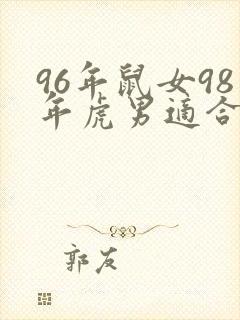 96年鼠女98
年虎男適合
郭友